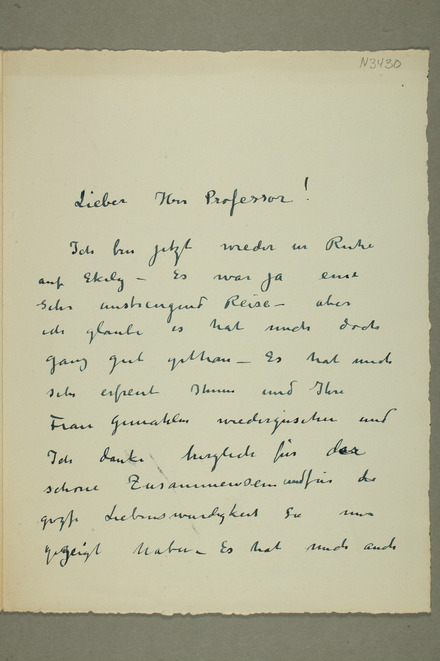 N3430
Lieber Herr Professor!
Ich bin jetzt wieder in Ruhe
auf Ekely – Es war ja eine
sehr anstrengend Reise – aber
ich glaube es hat mich doch
ganz gut gethan – Es hat mich
sehr erfreut Ihnen und Ihre
Frau Gemahlin wiederzusehen und
Ich danke herzlich für das
schöne Zusammensein und für die
große Liebenswürdigkeit Sie mir
gezeigt haben – Es hat mich auch